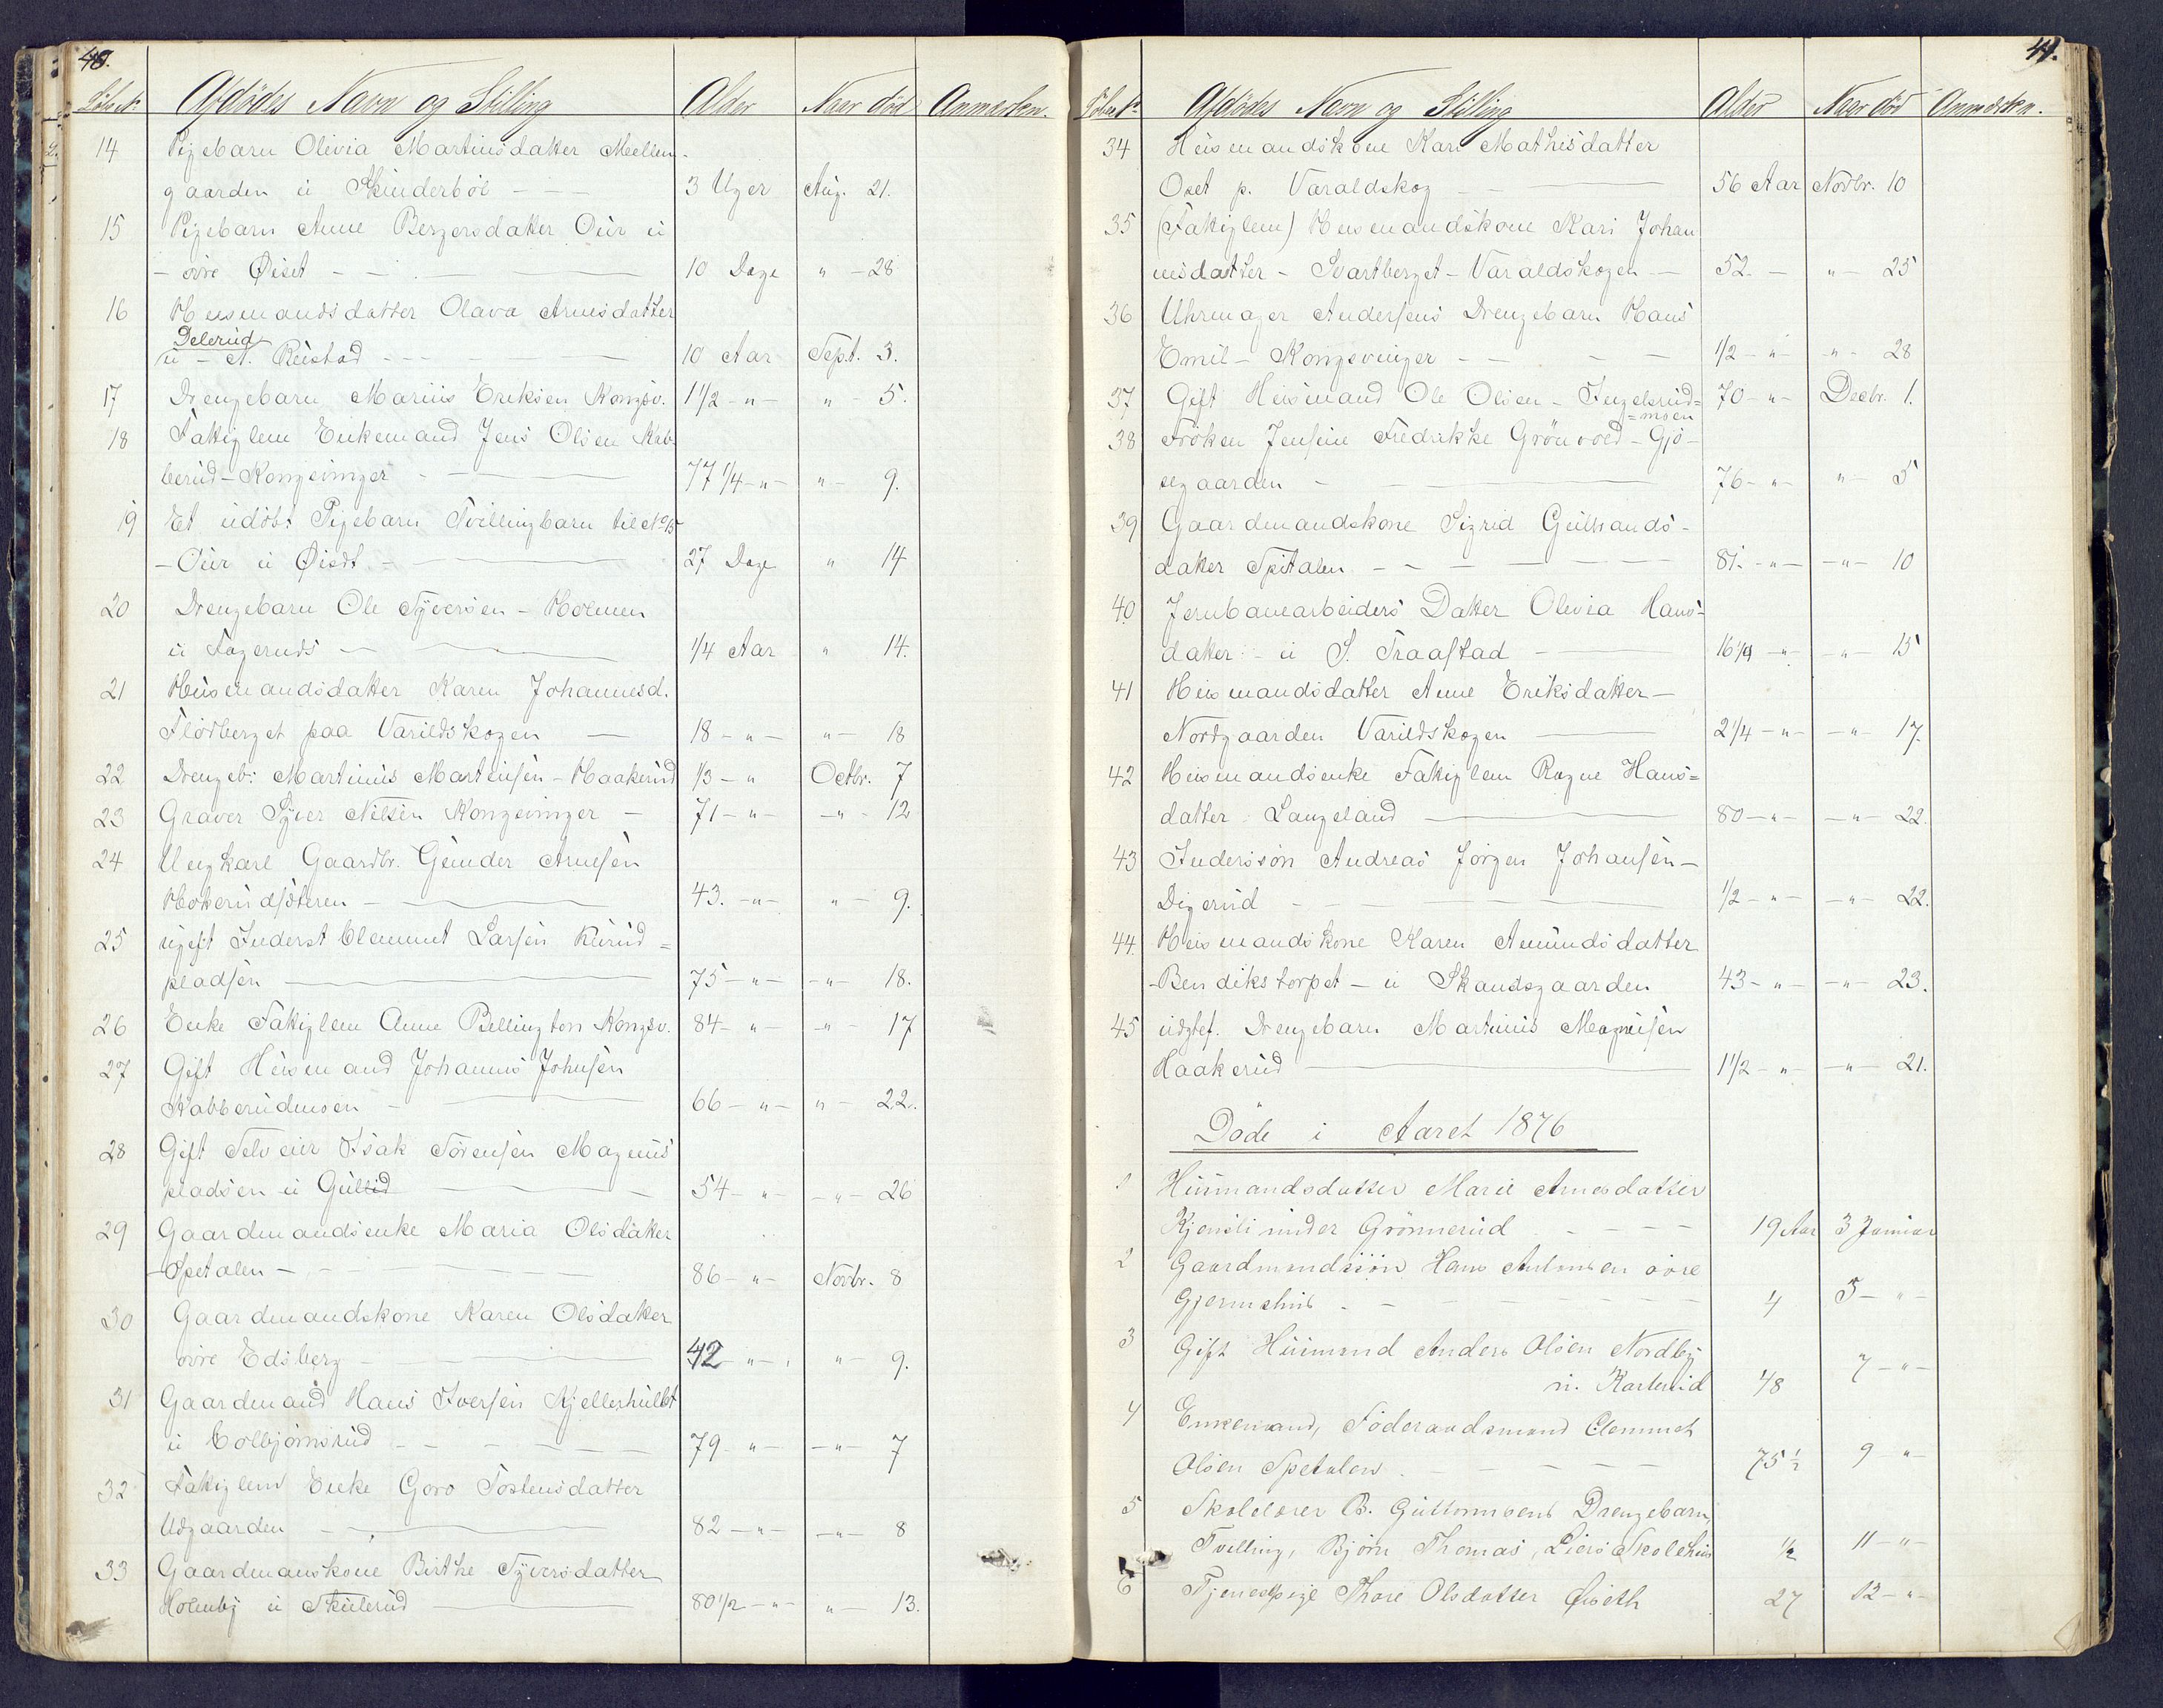 40.
Löbe No Afdödes Navn og Stilling Alder Naar död Anmærkn.
14 Pigebarn Olivia Martinsdatter Mellem-
gaarden u Skinderböl 3 Uger Aug. 21.
15 Pigebarn Anne Bergersdatter Oür u
- øvre Øiset 10 Dage " - 28
16 Husmandsdatter Olava Arnesdatter
Delerud
u - N. Rustad 10 Aar Sept. 3.
17 Drengebarn Marius Eriksen Kongsv. 1 1/2 - " - " - 5.
18 Fattiglem Enkemand Jens Olsen Rab-
berud - Kongsvinger 77 1/4 - " - " - 9.
19 Et udöbt Pigebarn Tvillingbarn til No 15
- Oür u Øisdt 27 Dage " 14
20 Drengebarn Ole Syversen - Holmen
u Fageruds 1/4 Aar " 14.
21 Husmandsdatter Karen Johannesd.
Flödberget paa Varildskogen 18 - " - " - 18
22 Drengeb: Martinus Martinsen - Haakerud 1/3 - " Octbr. 7
23 Graver Syver Nilsen Kongsvinger 71 - " - - " - 12
24 Ungkarl Gaardbr. Gunder Arnesen
Hokerudsæteren 43. - " - " - 9.
25 ugift Inderst Clemmet Larsen Rurud=
pladsen 75 - " - - " - 18.
26 Enke Fattiglem Anne Bellington Kongsv. 84 - " - - " - 17
27 Gift Husmand Johannis Johnsen
Rabberudmoen 66 - " - " - 22.
28 Gift Selveier Isak Sörensen Magnus
pladsen u Gullid 54 - " - - " - 26
29 Gaardmandsenke Maria Olsdatter
- Spetalen - 86 - " - Novbr. 8
30 Gaardmandskone Karen Olsdatter
øvre Edsberg 42 - " - " - 9.
31 Gaardmand Hans Iversen Kjellerhullet
u Colbjörnsrud 79 - " - - " - 7
32 Fattiglem Enke Goro Tostensdatter
Udgaarden 82 - " - - " - 8
33 Gaardmanskone Birthe Syversdatter
Holmby u Skulerud 80 1/2 - " - " - 13.
41.
Löbe No Afdödes Navn og Stilling Alder Naar död Anmærkn.
34 Husmandskone Kari Mathisdatter
Oset p. Varaldskog 56 Aar Novbr. 10
35 (Fattiglem) Husmandskone Kari Johan
nisdatter - Svartberget - Varaldskogen 52. - " - 25
36 Uhrmager Andersens Drengebarn Hans
Emil - Kongsvinger 1/2 - " - - " - 28
37 Gift Husmand Ole Olsen - Ingelsrud= 70 - " - Decbr. 1.
=moen
38 Fröken Jensine Fredrikke Grönvold - Gjö-
segaarden 76 - " - " - 5
39 Gaardmandskone Sigrid Gulbrands-
datter Spitalen 81. - " - - " - 10
40 Jernbanearbeiders Datter Olivia Hans-
datter - u S. Traastad 16 1/4 - " - - " - 15
41 Husmandsdatter Anne Eriksdatter -
Nordgaarden Varildskogen 2 1/4 - " - - " - 17.
42 Husmandsenke Fattiglem Ragne Hans=
datter Langeland 80 - " - - " - 22.
43 Inderssön Andreas Jörgen Johansen -
Digerud 1/2 - " - - " - 22.
44. Husmandskone Karen Amundsdatter
- Bendikstorpet - u Skandsgaarden 43 - " - - " - 23.
45 uægtef. Drengebarn Martinus Magnusen
Haakerud 1 1/2 - " - - " - 21.
Döde i Aaret 1876
1 Husmandsdatter Marie Arnesdatter
Kjensli under Grönnerud 19 Aar 3 Januar
2 Gaardmandssön Hans Antonsen övre
Gjermshus 4 5 - " -
3 Gift Husmand Anders Olsen Nordby
u. Karterud 48 7 - " -
4 Enkemand, Föderaadsmand Clemmet
Olsen Spetalen 75 1/2 9 - " -
5 Skolelærer B. Guttormsens Drengebarn,
Tvilling, Björn Thomas, Liers Skolehus 1/2 11 - " -
6 Tjenestpige Thore Olsdatter Øiseth 27 12 - " -